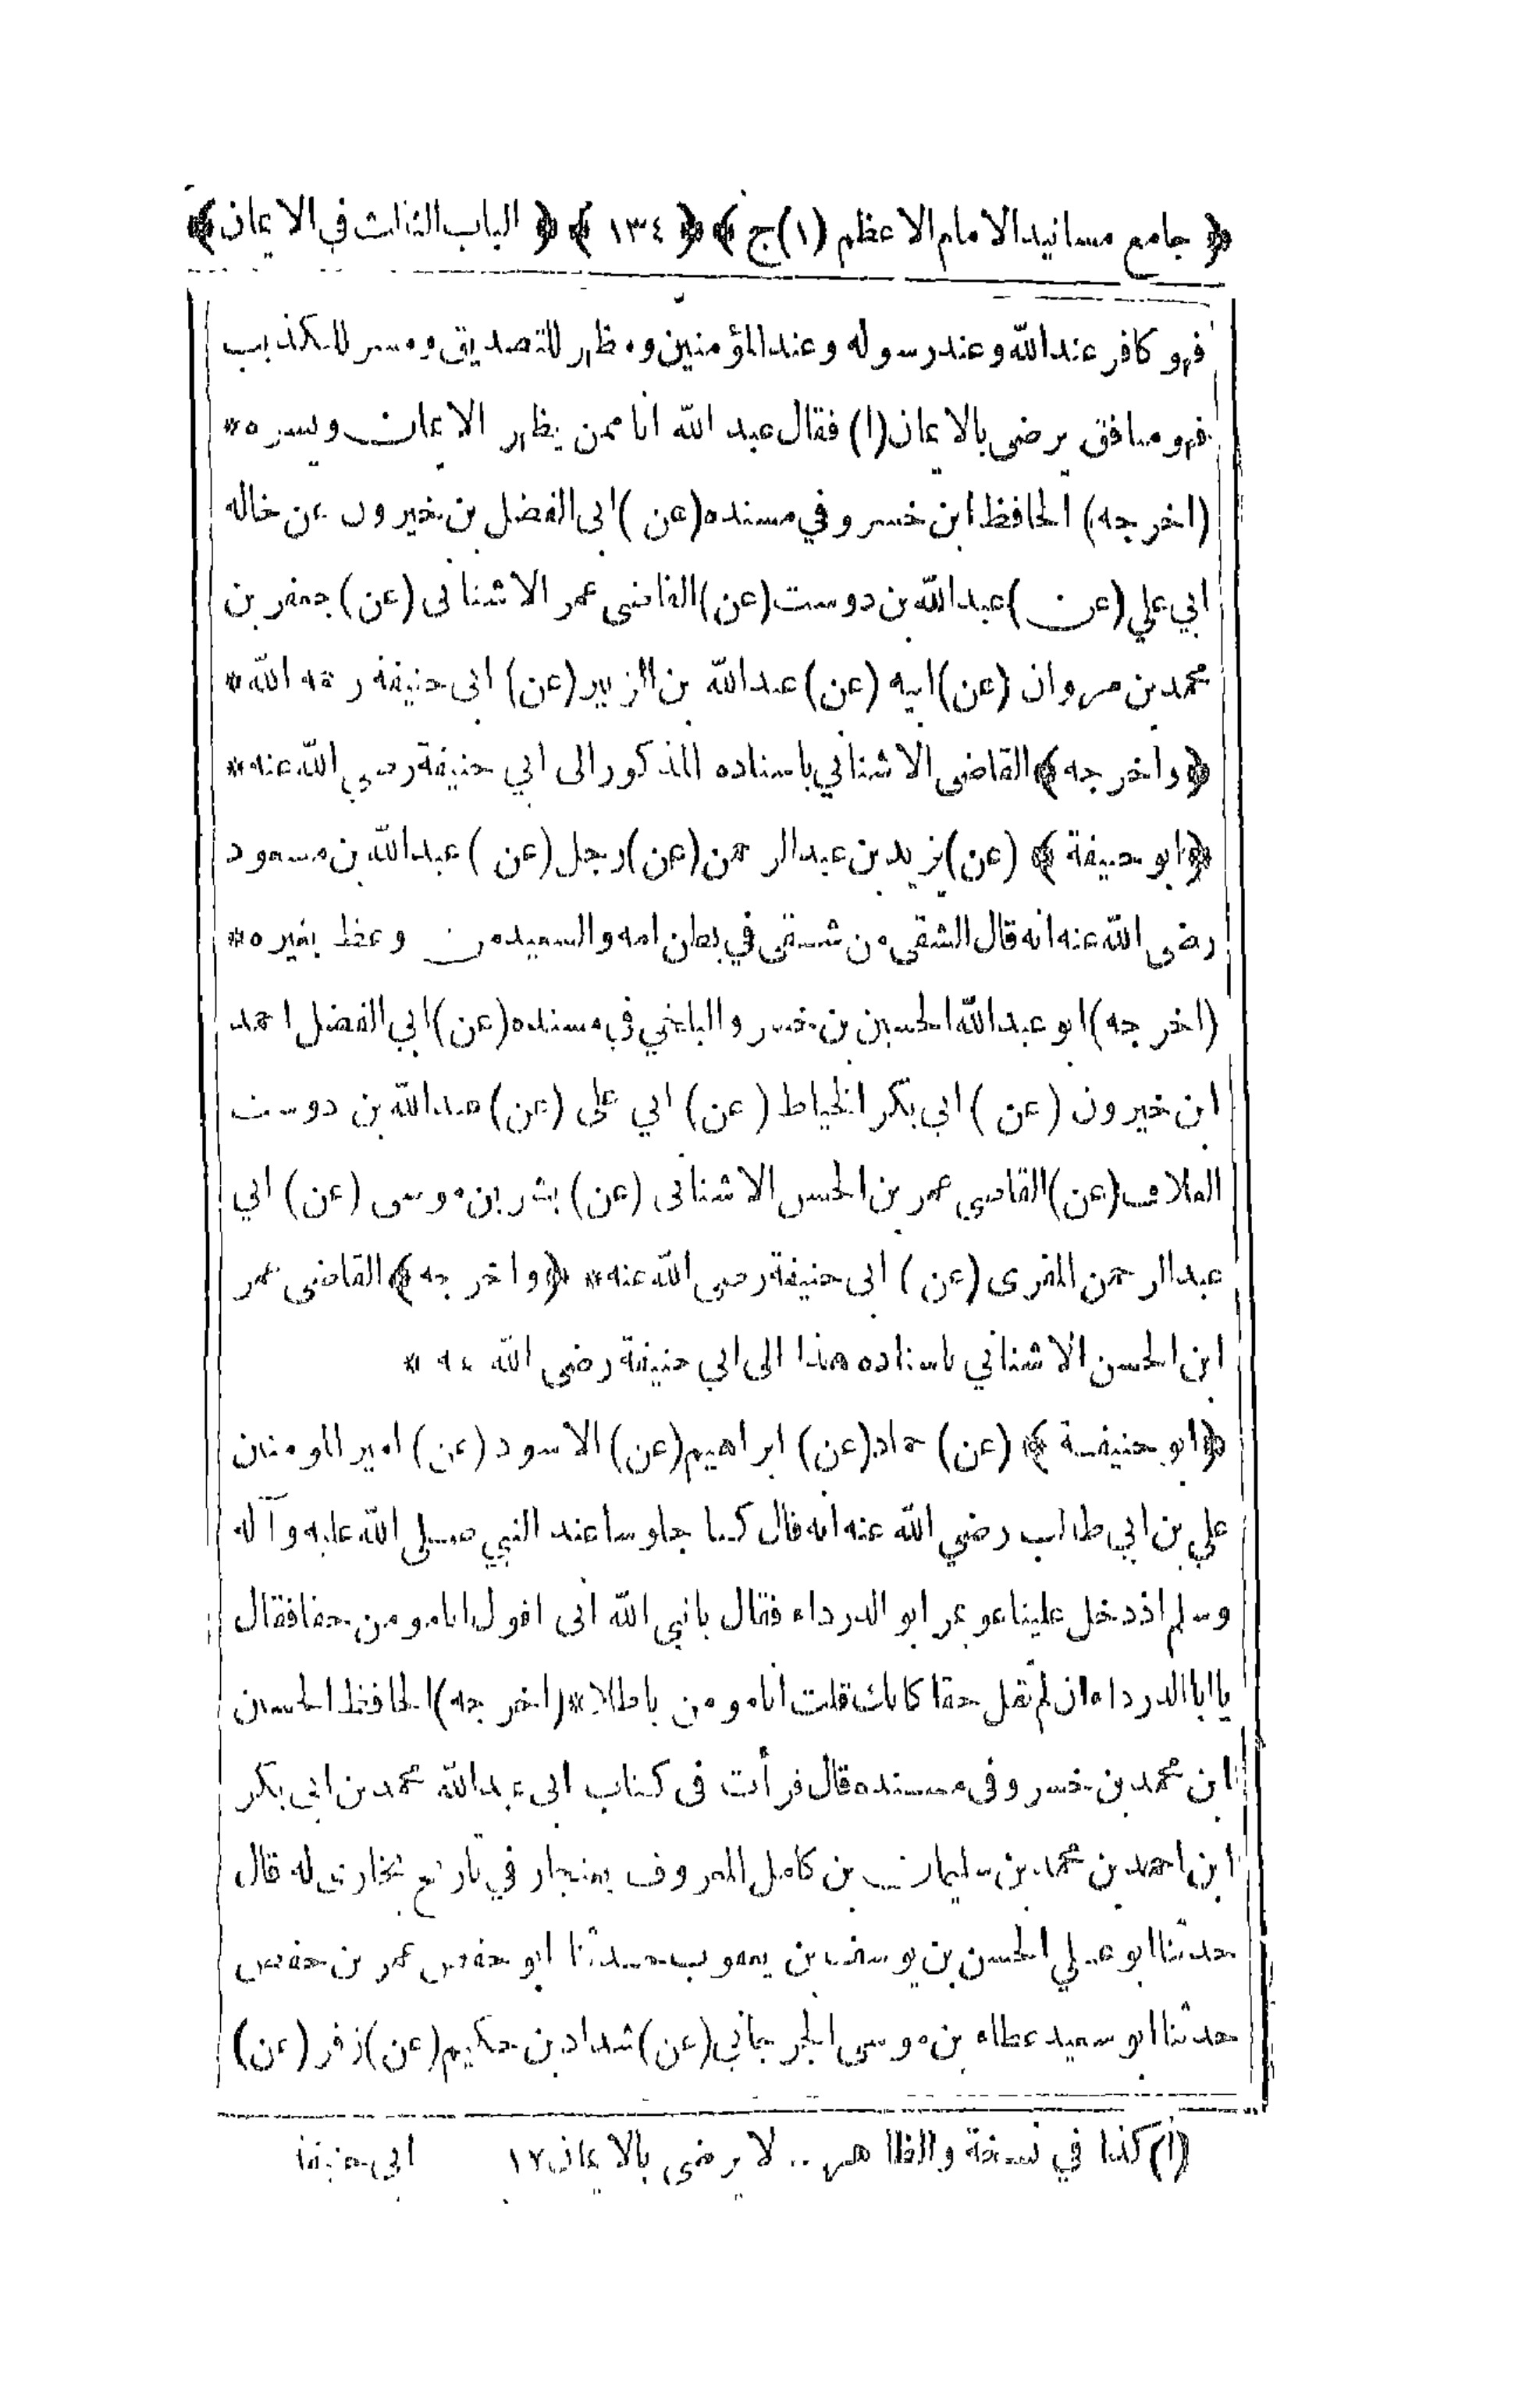 ﴿ جامع مسانيد الامام الاعظم (١)ج ﴾ ﴿ ١٣٤ ﴾ ﴿ الباب الثالث في الايمان ﴾
فهو كافر عند الله وعند رسوله وعند المؤمنين ومظهر للتصديق ومسر للتكذيب
فهو منافق يرضى بالايمان (ا) فقال عبد الله انا ممن يظهر الايمان ويسره *
(اخرجه) الحافظ ابن خسرو في مسنده (عن) ابى الفضل بن خيرون عن خاله
ابي علي (عن) عبد الله بن دوست (عن) القاضى عمر الاشنانى (عن) جعفر بن
محمد بن مروان (عن) ابيه (عن) عبد الله بن الزبير (عن) ابى حنيفة رحمه الله *
﴿ واخرجه ﴾ القاضى الاشناني باسناده المذكور الى ابي حنيفة رضى الله عنه *
﴿ ابو حنيفة ﴾ (عن) يزيد بن عبد الرحمن (عن) رجل (عن) عبد الله بن مسعود
رضى الله عنه انه قال الشقى من شقى في بطن امه والسعيد من وعظ بغيره *
(اخرجه) ابو عبد الله الحسين بن خسرو البلخي في مسنده (عن) ابي الفضل احمد
ابن خيرون (عن) ابي بكر الخياط (عن) ابي على (عن) عبد الله بن دوست
العلاف (عن) القاضي عمر بن الحسن الاشنانى (عن) بشر بن موسى (عن) ابي
عبد الرحمن المقرى (عن) ابى حنيفة رضى الله عنه * ﴿ واخرجه ﴾ القاضى عمر
ابن الحسن الاشناني باسناده هذا الى ابي حنيفة رضى الله عنه *
﴿ ابو حنيفة ﴾ (عن) حماد (عن) ابراهيم (عن) الاسود (عن) امير المومنين
علي بن ابي طالب رضي الله عنه انه قال كنا جلوسا عند النبي صلى الله عليه وآله
وسلم اذ دخل علينا عويمر ابو الدرداء فقال يا نبي الله انى اقول انا مومن حقا فقال
يا ابا الدرداء ان لم تقل حقا كانك قلت انا مومن باطلا * (اخرجه) الحافظ الحسين
ابن محمد بن خسرو فى مسنده قال قرأت فى كتاب ابى عبد الله محمد بن ابى بكر
ابن احمد بن محمد بن سليمان بن كامل المعروف بغنجار في تاريخ بخارى له قال
حدثنا ابو علي الحسن بن يوسف بن يعقوب حدثنا ابو حفص عمر بن حفص
حدثنا ابو سعيد عطاء بن موسى الجرجاني (عن) شداد بن حكيم (عن) زفر (عن)
(ا) كذا في نسخة والظاهر .. لا يرضى بالايمان ١٢ ابى حنيفة